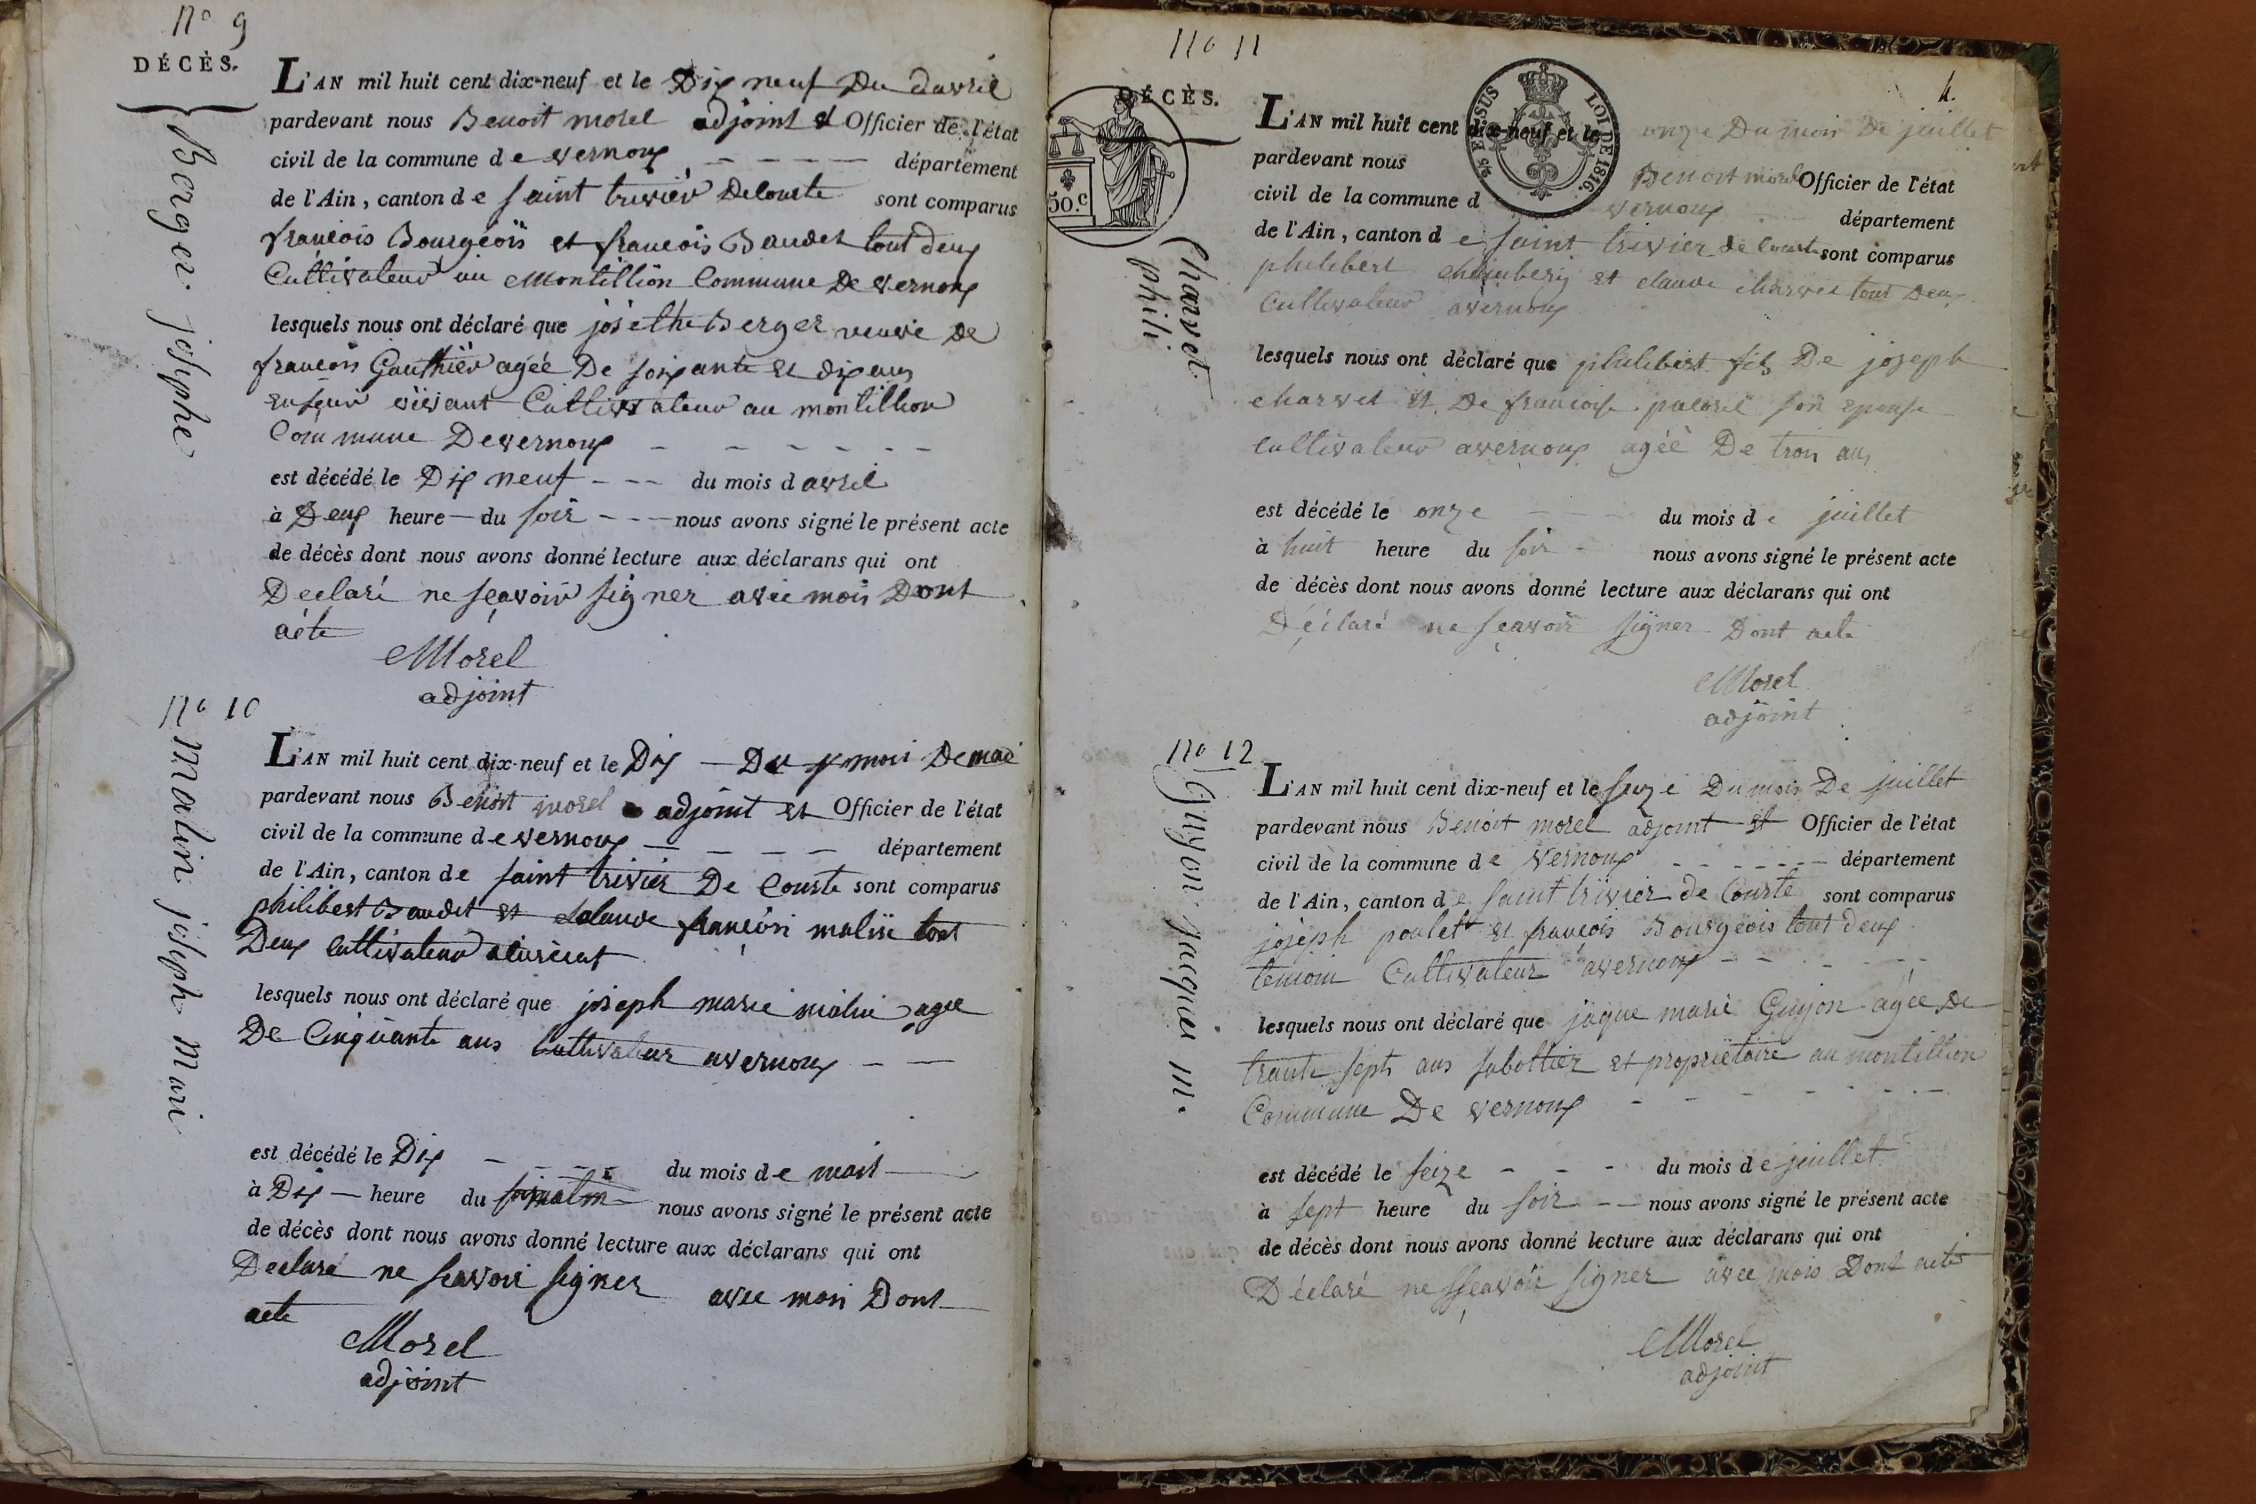 No 9
DÉCÈS.
Berger josephe
L'AN mil huit cent dix-neuf et le Dix neuf Du davril
pardevant nous Benoit morel adjoint et Officier de l'état
civil de la commune de vernoux — — — — département
de l'Ain, canton de saint trivier De Courte sont comparus
francois Bourgeois et francois Baudet tout deux
Cultivateur au Montillion Commune De vernoux
lesquels nous ont déclaré que josethe Berger veuve De
francois Gauthier agée De soixante et dix ans
vivant Cultivateur au montillion
Commune De vernoux — — — — — —
est décédé le Dix neuf - - - du mois d avril
à Deux heure — du soir - - - nous avons signé le présent acte
de décès dont nous avons donné lecture aux déclarans qui ont
Declaré ne sçavoir signer avec mois Dont
acte
Morel
adjoint
No 10
Malin joseph Mari
L'AN mil huit cent dix-neuf et le Dix — Du mois De mai
pardevant nous Benoit morel adjoint et Officier de l'état
civil de la commune de vernoux — — — — département
de l'Ain, canton de saint trivier De Courte sont comparus
philibert Baudet et Claude francois malin tout
Deux Cultivateur
lesquels nous ont déclaré que joseph marie malin agée
De Cinquante ans Cultivateur avernoux — —
est décédé le Dix - - - - du mois de mais
à Dix — heure du matin nous avons signé le présent acte
de décès dont nous avons donné lecture aux déclarans qui ont
Declaré ne scavoir signer avec mois Dont
acte
Morel
adjoint
No 11
4.
DÉCÈS.
50.c
EN SUS
LOI DE 1816.
Charvet
phili
L'AN mil huit cent dix-neuf et le onze Du mois De juillet
pardevant nous Benoit morel Officier de l'état
civil de la commune d vernoux département
de l'Ain, canton de saint trivier de Courte sont comparus
philibert et claude charvet tout Deux
Cultivateur avernoux
lesquels nous ont déclaré que philibert fils De joseph
charvet et De francoise son epouse
cultivateur avernoux agée De trois ans
est décédé le onze — — — du mois de juillet
à huit heure du soir - nous avons signé le présent acte
de décès dont nous avons donné lecture aux déclarans qui ont
Déclaré ne sçavoir signer Dont acte
Morel
adjoint
No 12
Guyon jacques m.
L'AN mil huit cent dix-neuf et le seize Du mois De juillet
pardevant nous Benoit morel adjoint et Officier de l'état
civil de la commune de vernoux - - - - - - département
de l'Ain, canton de saint trivier de Courte sont comparus
joseph poulet et francois Bourgeois tout deux
temoin Cultivateur avernoux - - - - - -
lesquels nous ont déclaré que jaque marie Guyon agée De
trante sept ans sabottier et propriétaire au montillion
Commune De vernoux - - - - - -
est décédé le seize - - - du mois de juillet
à sept heure du soir - - nous avons signé le présent acte
de décès dont nous avons donné lecture aux déclarans qui ont
Déclaré ne sçavoir signer avec mois Dont acte
Morel
adjoint